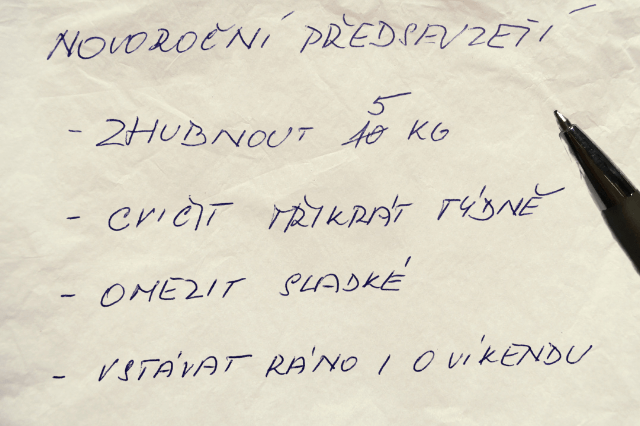 NOVOROČNÍ PŘEDSEVZETÍ
- ZHUBNOUT 10 5 KG
- CVIČIT TŘIKRÁT TÝDNĚ
- OMEZIT SLADKÉ
- VSTÁVAT RÁNO I O VÍKENDU